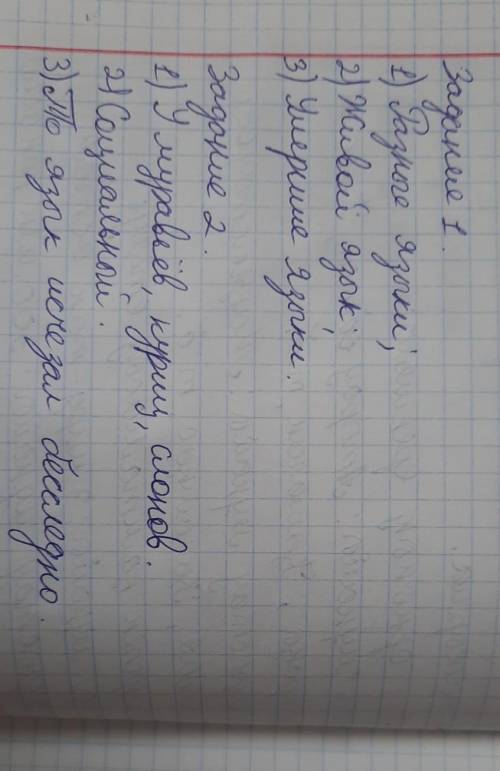 Задание 1.
1) Разные языки;
2) Живой язык;
3) Умершие языки.
Задание 2.
1) У муравьёв, куриц, слонов.
2) Социальный.
3) То язык исчезал бесследно.